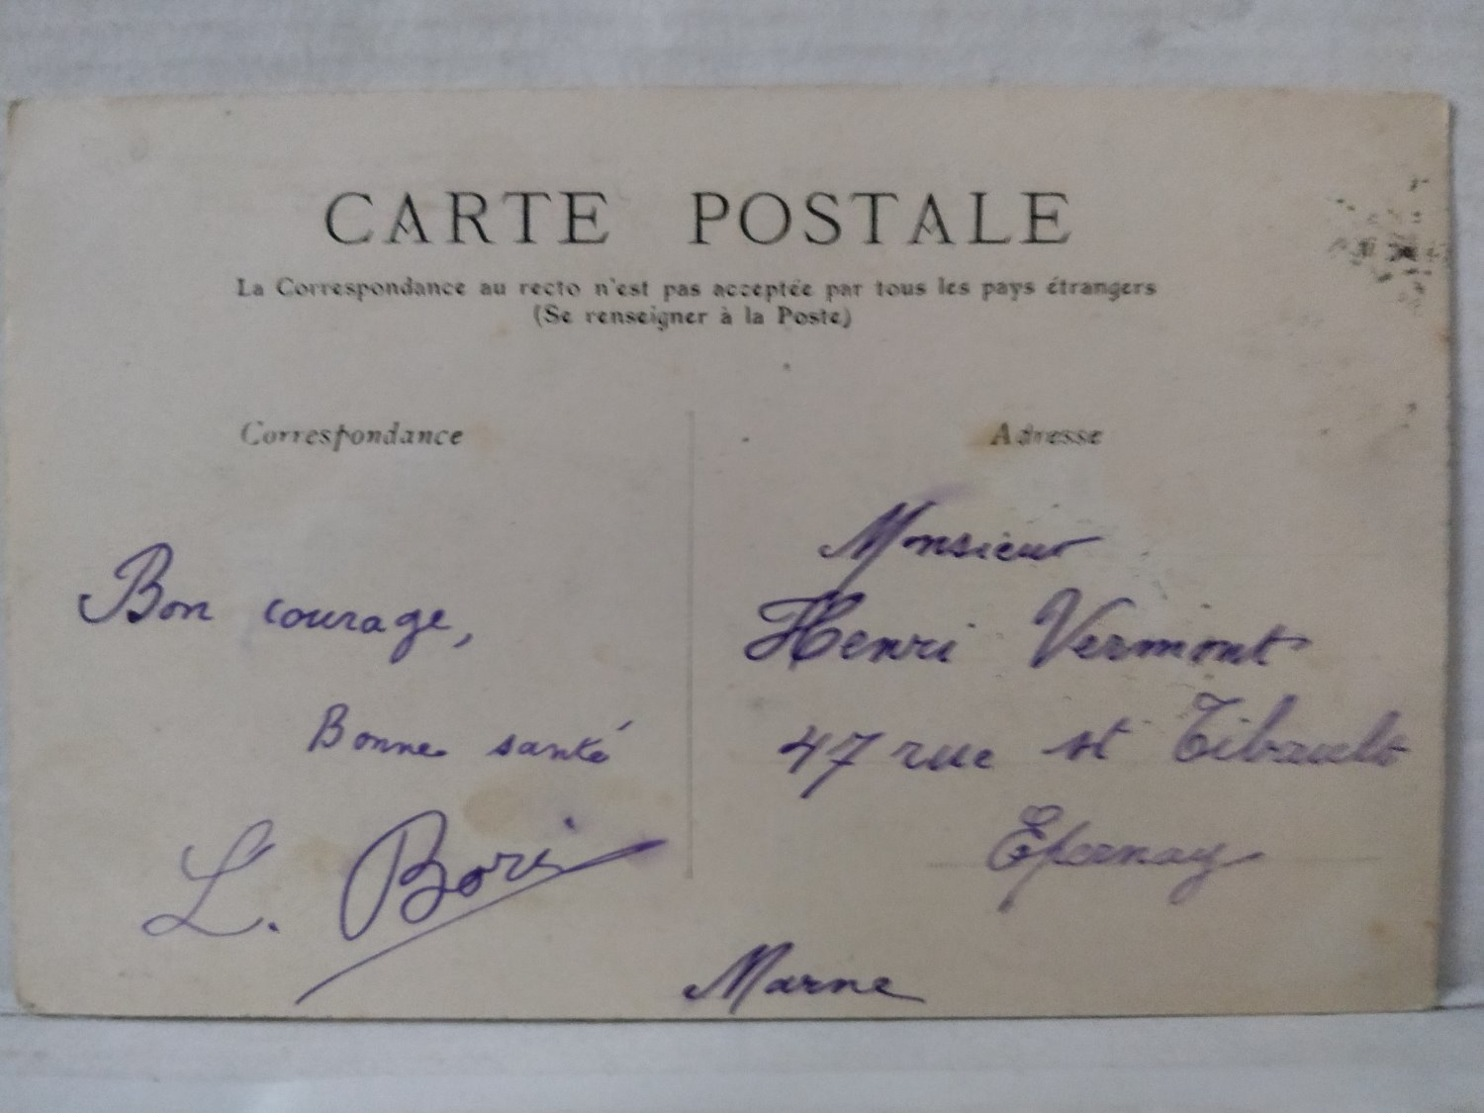 CARTE POSTALE
La Correspondance au recto n'est pas acceptée par tous les pays étrangers
(Se renseigner à la Poste)
Correspondance
Adresse
Bon courage,
Bonne santé
L. Bori
Monsieur
Henri Vermont
47 rue st Tibault
Epernay
Marne